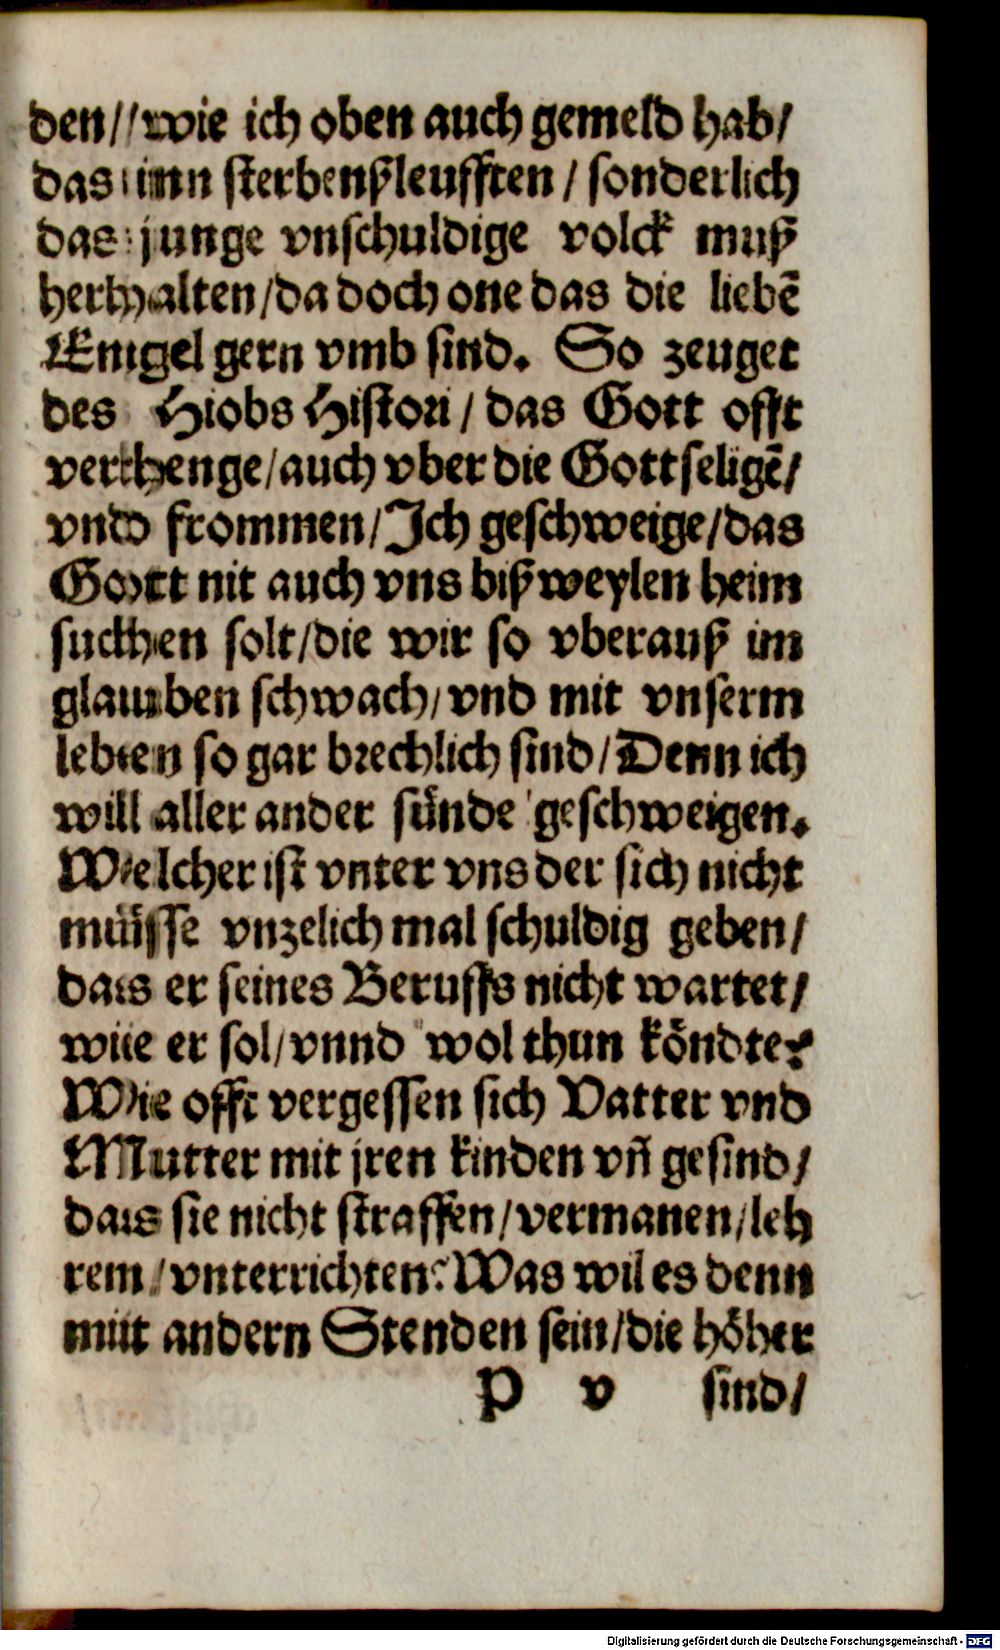 den/ wie ich oben auch gemeld hab/
das inn sterbenßleufften / sonderlich
das junge vnschuldige volck muß
herhalten/da doch one das die liebẽ
Engel gern vmb sind. So zeuget
des Hiobs Histori / das Gott offt
verhenge/auch vber die Gottseligẽ/
vnd frommen/Ich geschweige/das
Gott nit auch vns bißweylen heim
suchen solt/die wir so vberauß im
glauben schwach/vnd mit vnserm
leben so gar brechlich sind/Denn ich
will aller ander sünde geschweigen.
Welcher ist vnter vns der sich nicht
müsse vnzelich mal schuldig geben/
das er seines Beruffs nicht wartet/
wie er sol/vnnd wol thun köndte?
Wie offt vergessen sich Vatter vnd
Mutter mit jren kinden vñ gesind/
das sie nicht straffen/vermanen/leh
ren/vnterrichten? Was wil es denn
mit andern Stenden sein/die höher
P v sind/
Digitalisierung gefördert durch die Deutsche Forschungsgemeinschaft - DFG